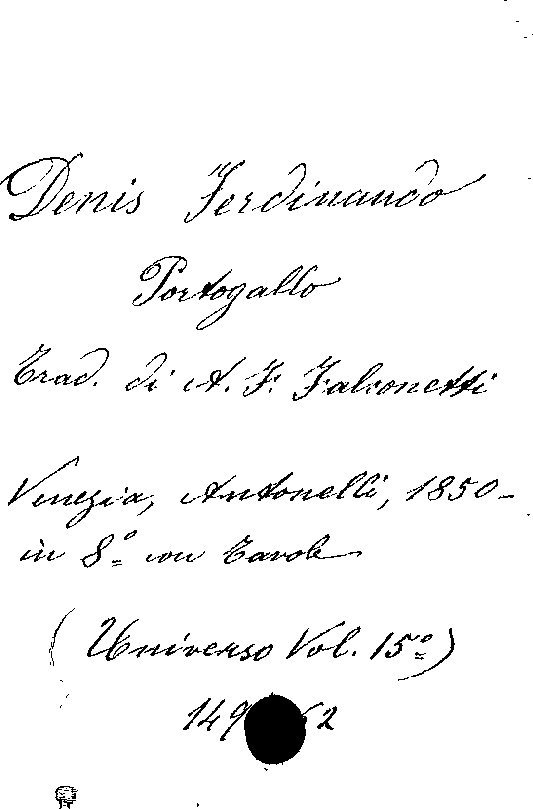 Denis Ferdinando
Portogallo
Trad. di A. F. Falconetti
Venezia, Antonelli, 1850-
in 8º con Tavole
(Universo Vol. 15º)